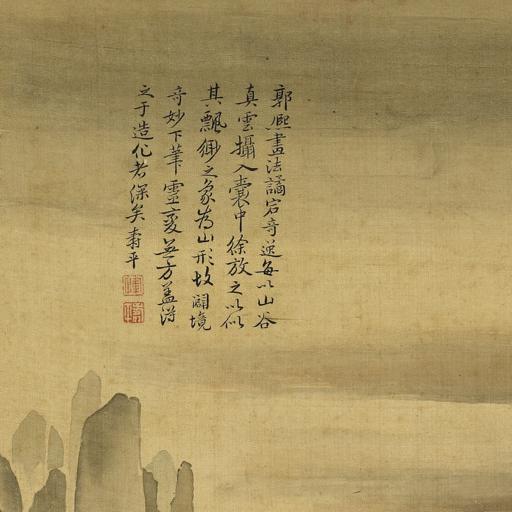 郭熙畫法譎宕奇逆每以山谷
真雲攝入囊中徐放之以似
其飄緲之象為山形故闢境
奇妙下筆靈變無方蓋得
之于造化者深矣壽平